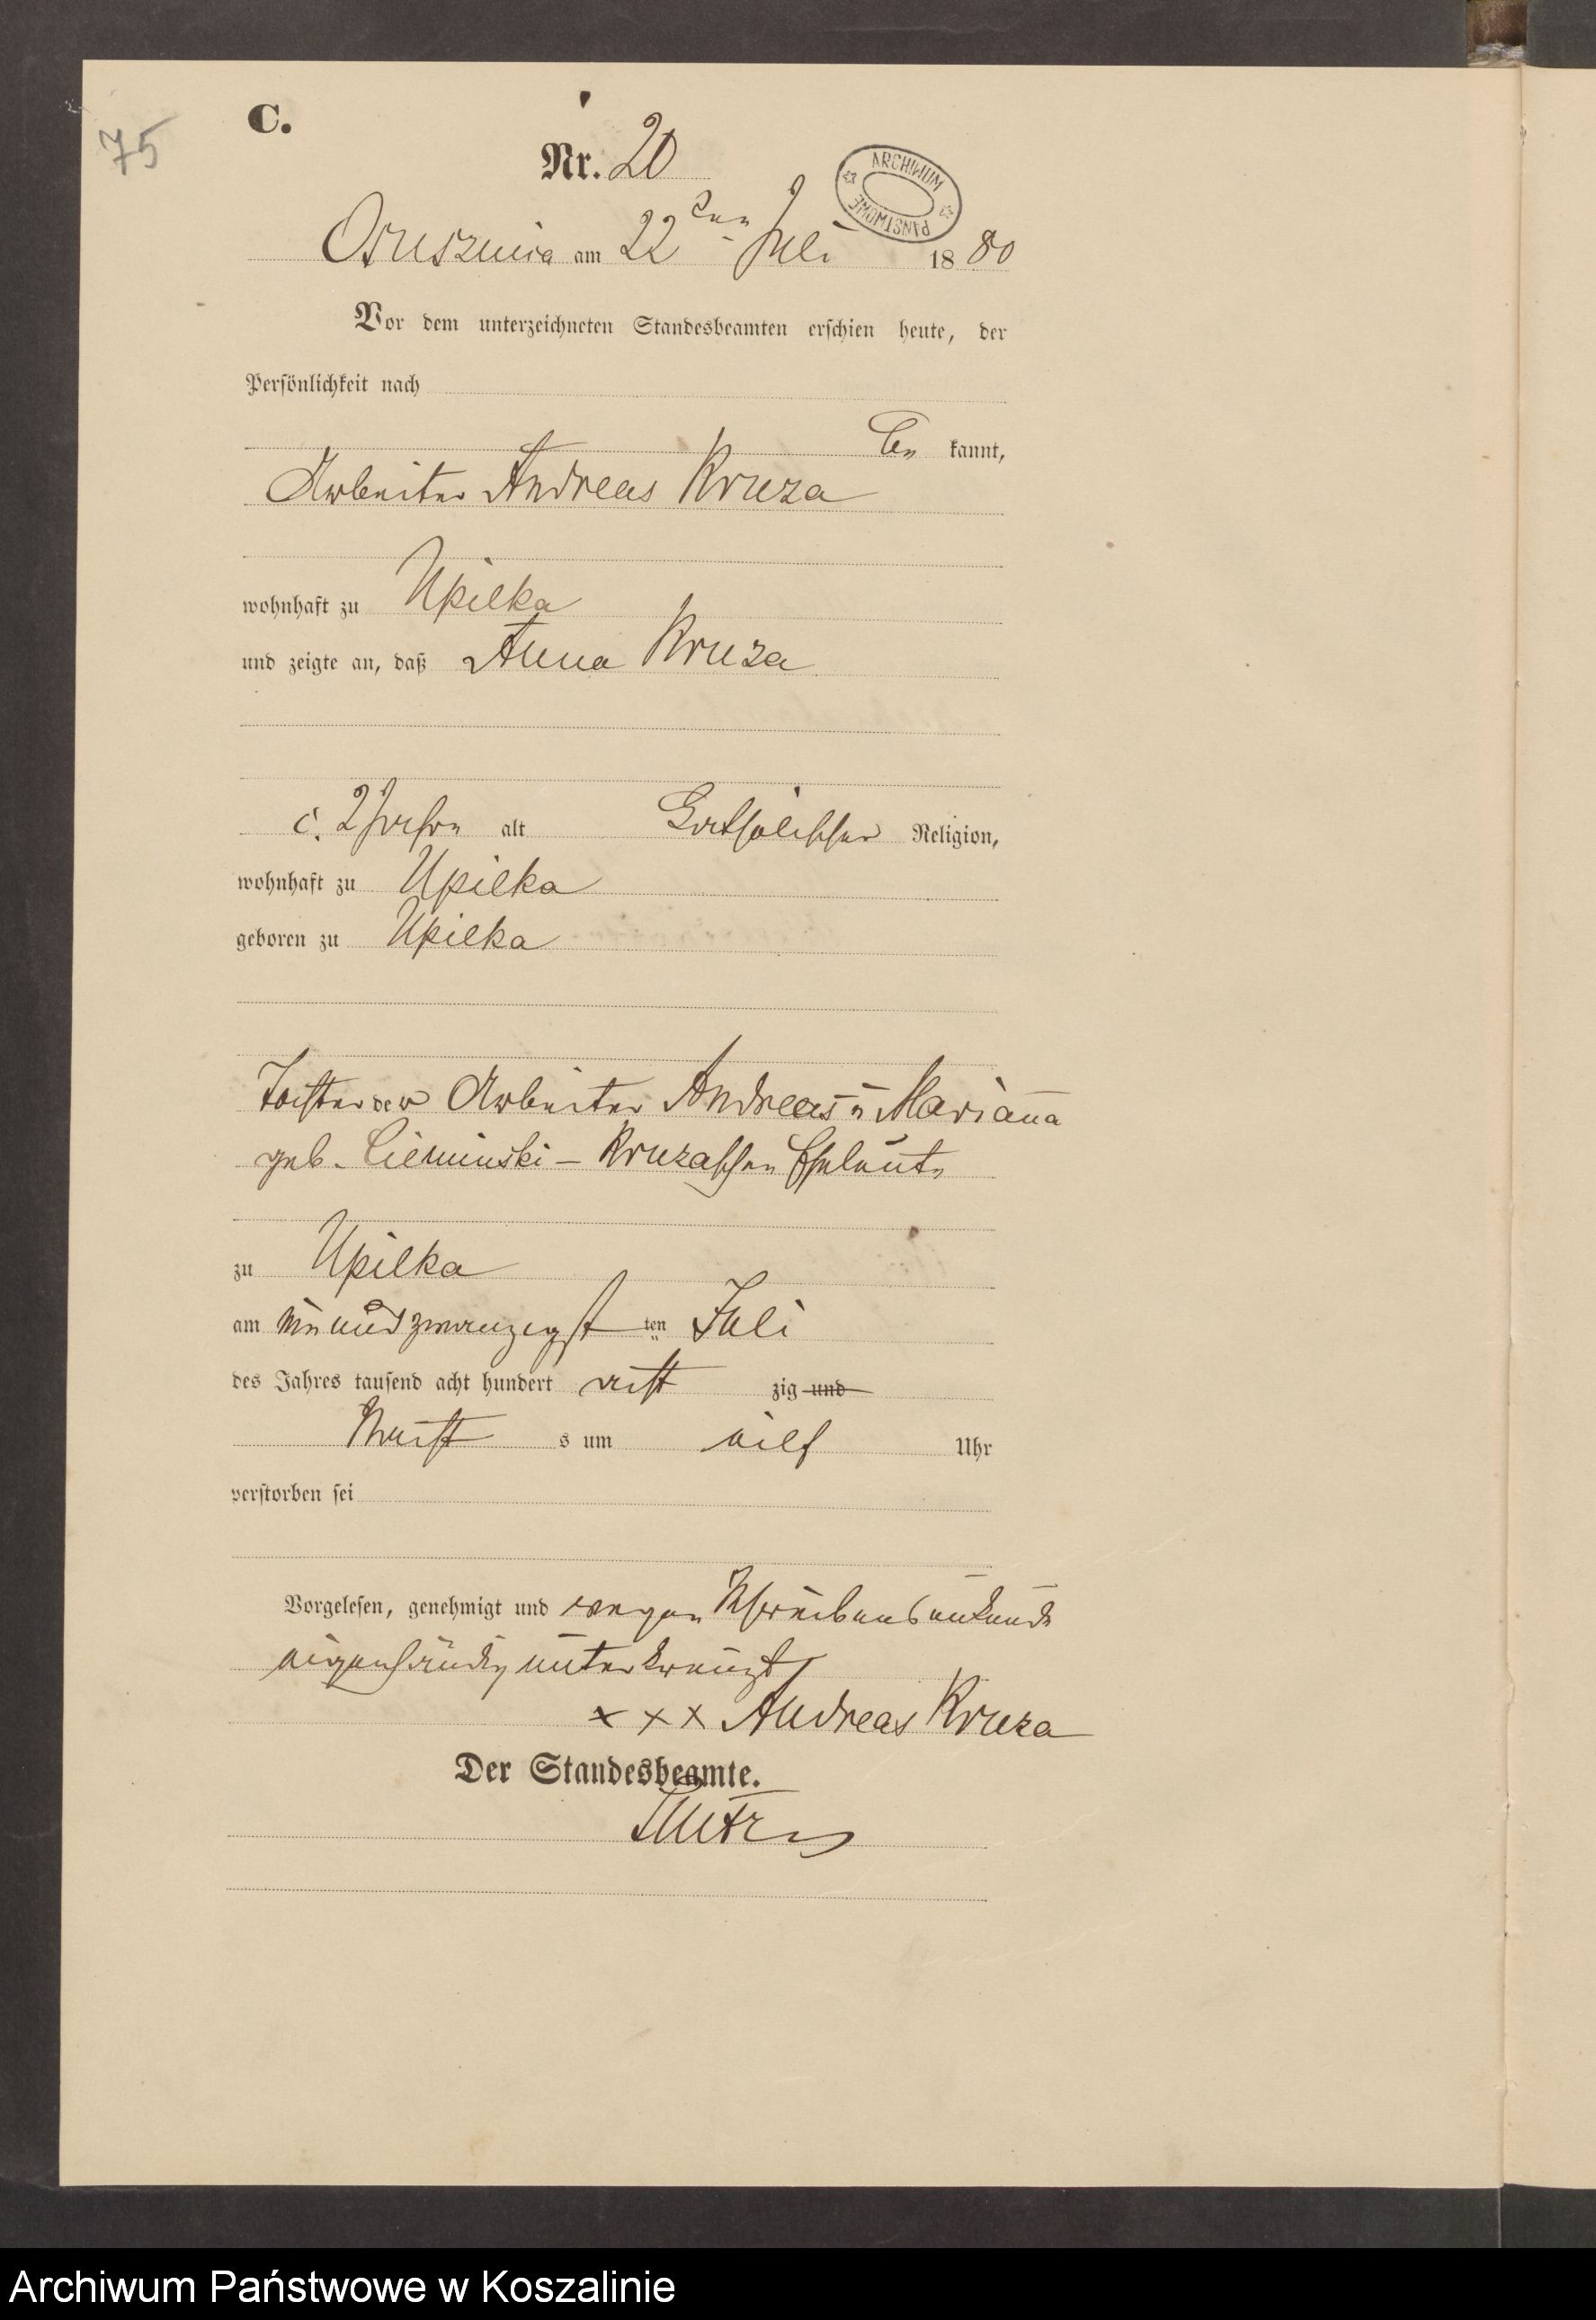 75
C.
Nr. 20
ARCHIWUM PAŃSTWOWE
Osusznica am 22ten Juli 1880
Vor dem unterzeichneten Standesbeamten erschien heute, der
Persönlichkeit nach
be kannt,
Arbeiter Andreas Kruza
wohnhaft zu Upilka
und zeigte an, daß Anna Kruza
c. 2 Jahre alt Katholischer Religion,
wohnhaft zu Upilka
geboren zu Upilka
Tochter der Arbeiter Andreas u Mariana
geb. Cieminski - Kruzaschen Eheleute
zu Upilka
am ein und zwanzigst ten Juli
des Jahres tausend acht hundert acht zig und
Nacht s um eilf Uhr
verstorben sei
Vorgelesen, genehmigt und wegen Schreibensunkunde
eigenhändig unterkreuzt
x x x Andreas Kruza
Der Standesbeamte.
Archiwum Państwowe w Koszalinie